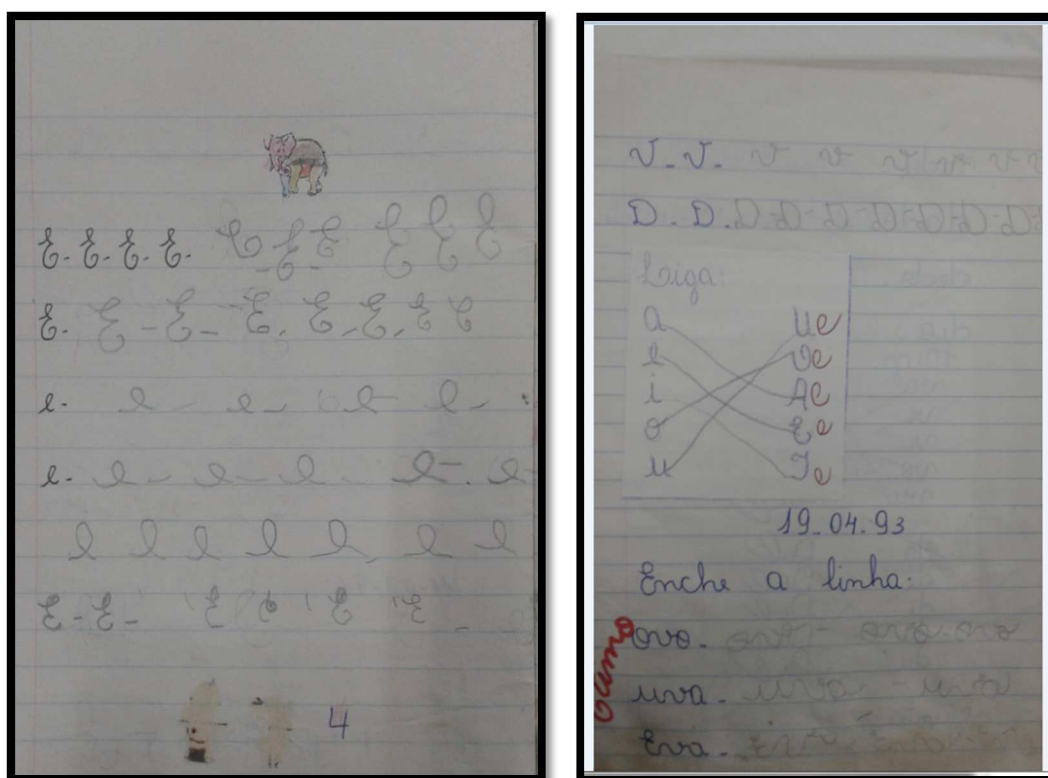 E. E. E. E. E E E E E E
E. E - E - E. E. E. E E
e. e - e - e - e -
e. e - e - e - e - e -
e e e e e e e
E - E - E E E E
4
V. V. v v v
D. D. D - D - D - D - D - D - D
Liga:
a U e
e O e
i A e
o E e
u I e
19.04.93
Enche a linha:
ovo. ovo - ovo ovo
uva. uva - uva
Eva. Eva